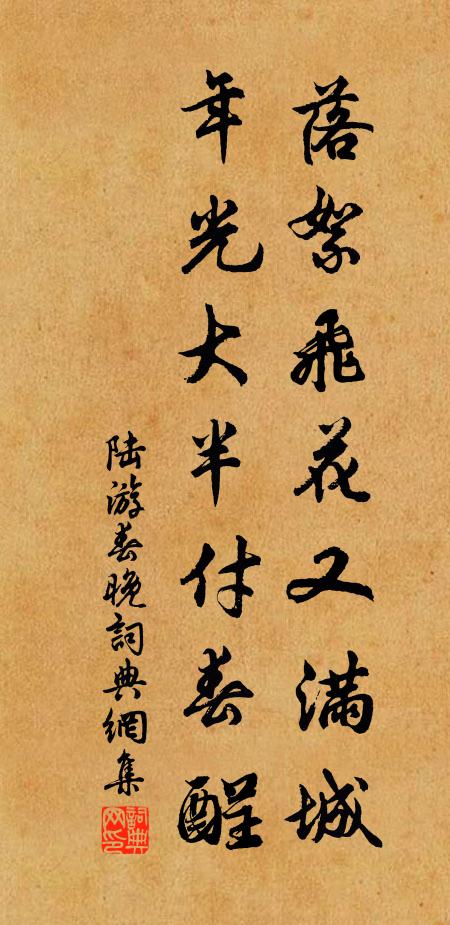 落絮飛花又滿城
年光大半付春酲
陆游春晚詞典網集
詞典網印